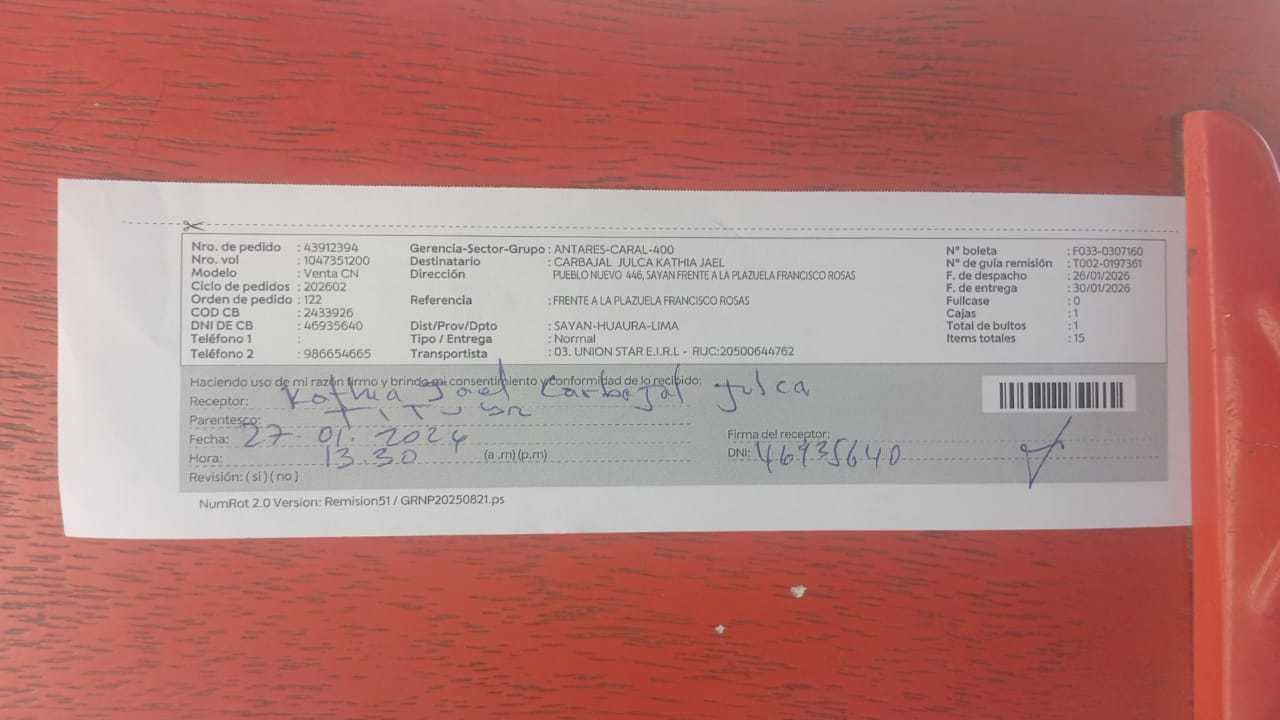 Nro. de pedido : 43912394 Gerencia-Sector-Grupo : ANTARES-CARAL-400 N° boleta : F033-0307160
Nro. vol : 1047351200 Destinatario : CARBAJAL JULCA KATHIA JAEL N° de guía remisión : T002-0197361
Modelo : Venta CN Dirección PUEBLO NUEVO 446, SAYAN FRENTE A LA PLAZUELA FRANCISCO ROSAS F. de despacho : 26/01/2026
Ciclo de pedidos : 202602 F. de entrega : 30/01/2026
Orden de pedido : 122 Referencia : FRENTE A LA PLAZUELA FRANCISCO ROSAS Fullcase : 0
COD CB : 2433926 Cajas : 1
DNI DE CB : 46935640 Dist/Prov/Dpto : SAYAN-HUAURA-LIMA Total de bultos : 1
Teléfono 1 : Tipo / Entrega : Normal Items totales : 15
Teléfono 2 : 986654665 Transportista : 03. UNION STAR E.I.R.L - RUC:20500644762
Haciendo uso de mi razón firmo y brindo mi consentimiento y conformidad de lo recibido:
Receptor: Kathia Jael Carbajal Julca
Parentesco: TITULAR
Fecha: 27.01.2026 Firma del receptor:
Hora: 13 30 (a .m) (p.m) DNI: 46935640
Revisión: ( si ) ( no )
NumRot 2.0 Version: Remision51 / GRNP20250821.ps